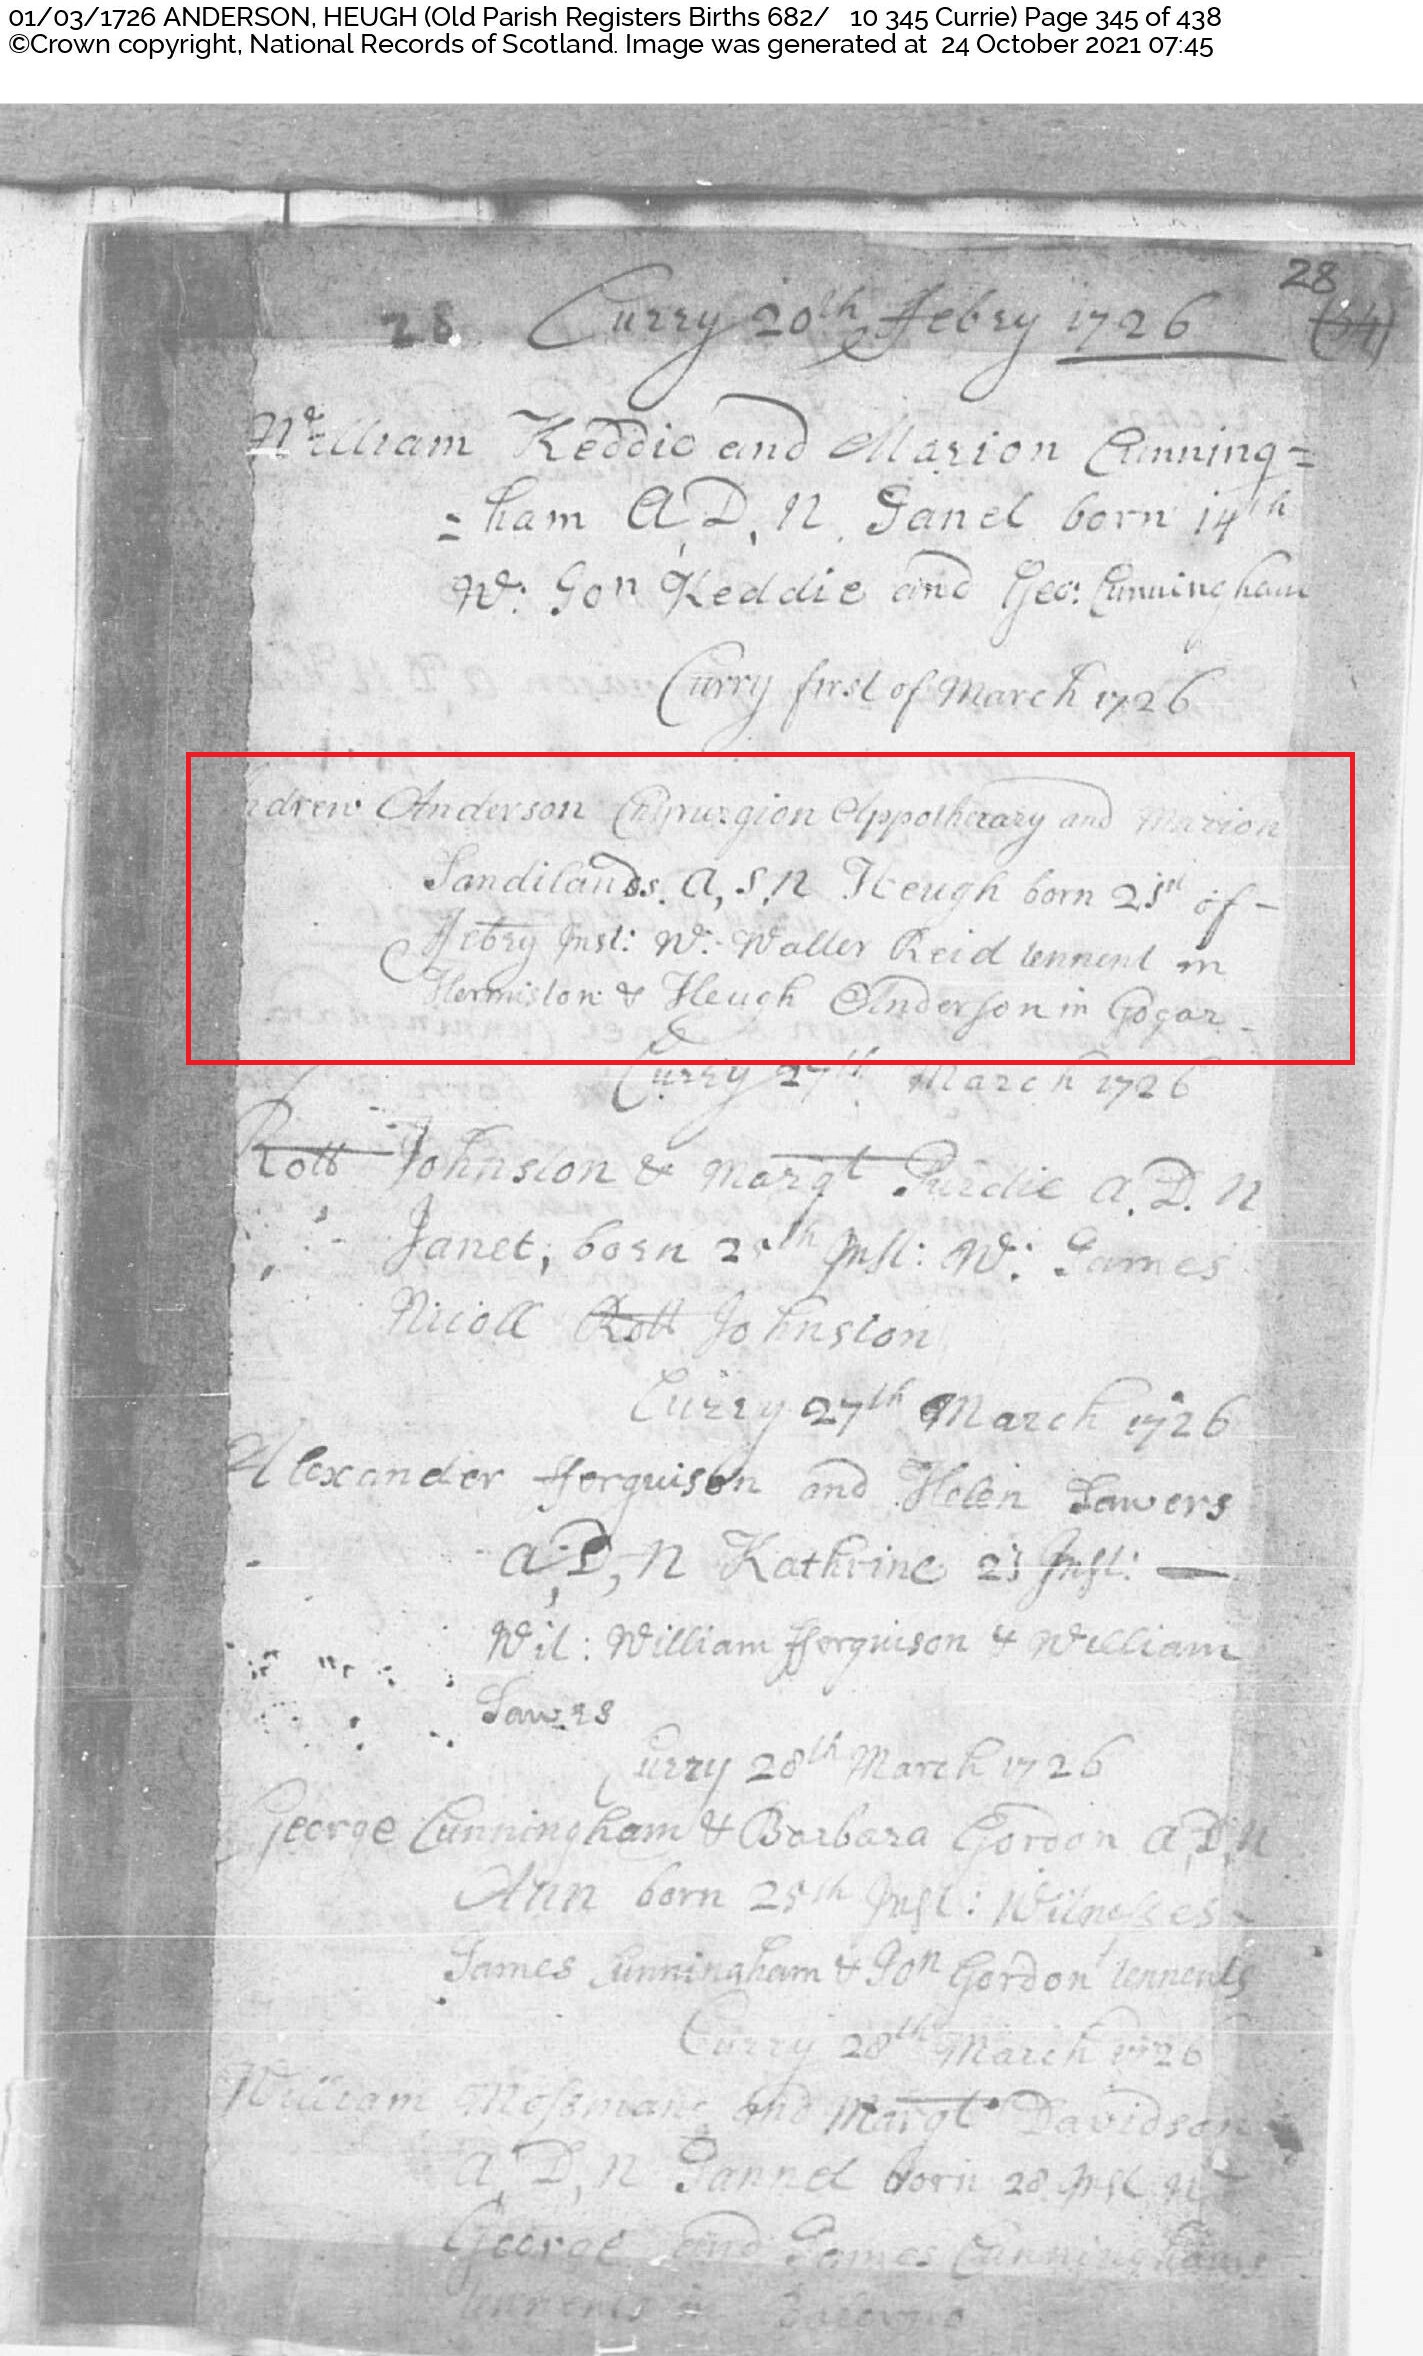 01/03/1726 ANDERSON, HEUGH (Old Parish Registers Births 682/ 10 345 Currie) Page 345 of 438
©Crown copyright, National Records of Scotland. Image was generated at 24 October 2021 07:45
28
28 Curry 20th Febry 1726 (54)
William Keddie and Marion Cunning=
=ham A, D, N, Janet born 14th
W: Jon Keddie and Geo: Cunningham
Curry first of March 1726
ndrew Anderson Chirurgion Appothecary and Marion
Sandilands. A, S, N Heugh born 21st of -
Febry Inst: W: Walter Reid tennent in
Hermiston & Heugh Anderson in Gogar
Curry 27th March 1726
Rott Johnston & Margt Purdie A. D. N
Janet, born 25th Inst: W: James
Nicoll Rott Johnston
Curry 27th March 1726
Alexander fferguison and Helen Sawers
A, D, N Kathrine 23 Inst: —
Wit: William fferguison & William
Sawers
Curry 28th March 1726
George Cunningham & Barbara Gordon A, D, N
Ann born 25th Inst: Witnesses -
James Cunningham & Jon Gordon tennents
Curry 28th March 1726
William Mossman and Margt Davidson
A, D, N Jannet born 28 Inst W
George and James Cunninghams
tennents in